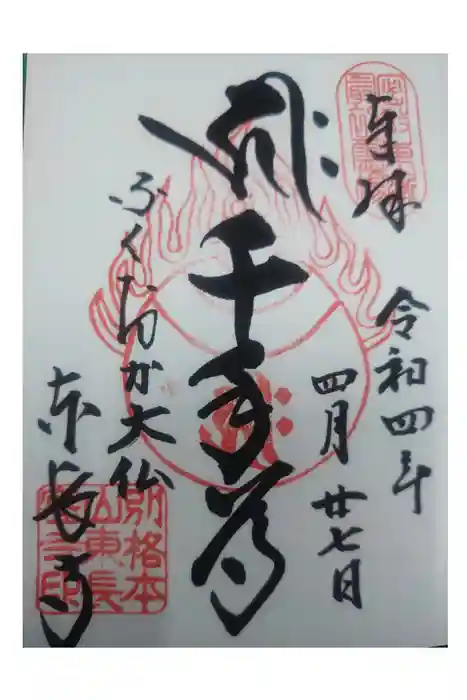 奉拝
令和四年
四月廿七日
千手尊
ふくおか大仏
東長寺
別格本
山東長
寺之印